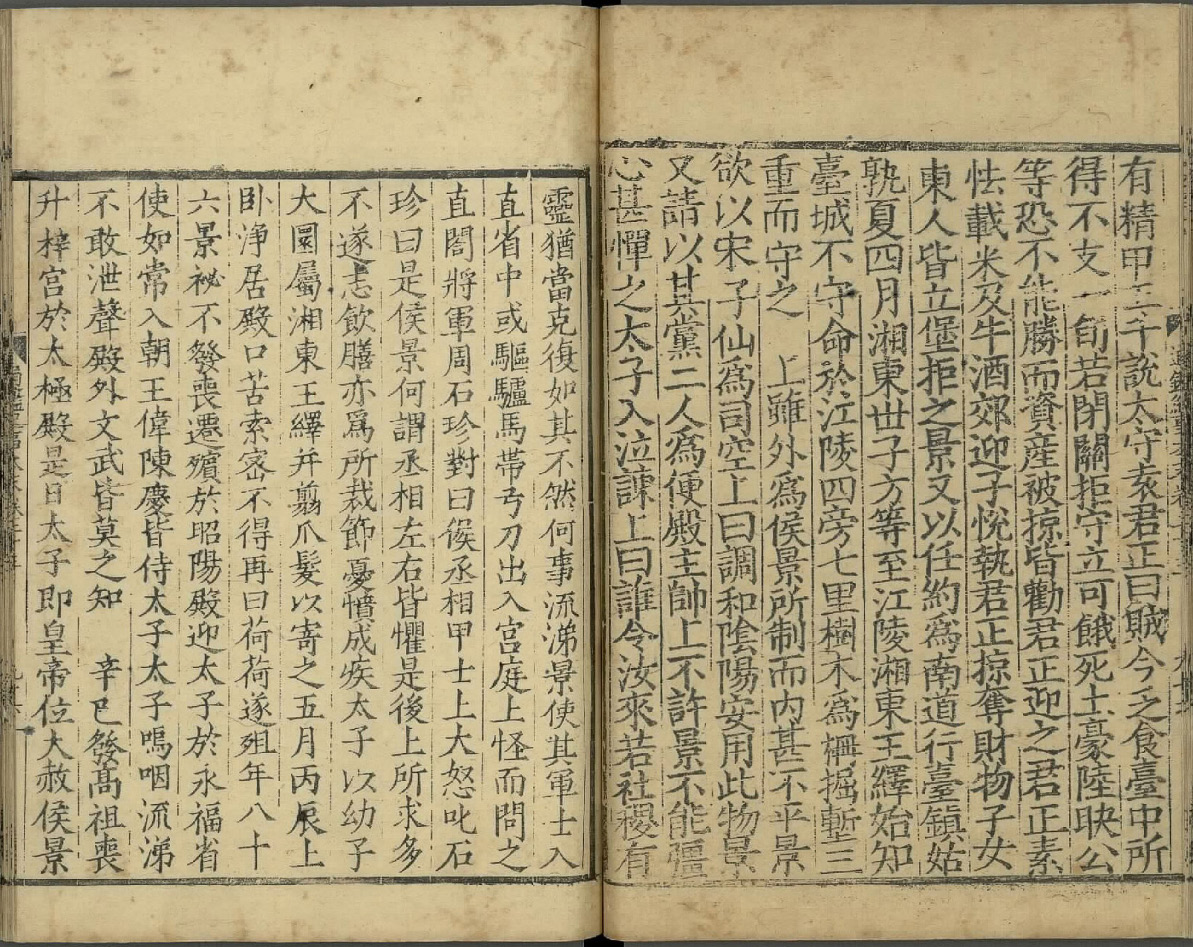 有精甲五千說太守袁君正曰賊今乏食臺中所
得不支一旬若閉關拒守立可餓死土豪陸映公
等恐不能勝而資産被掠皆勸君正迎之君正素
怯載米及牛酒郊迎子悅執君正掠奪財物子女
東人皆立堡拒之景又以任約爲南道行臺鎮姑
孰夏四月湘東世子方等至江陵湘東王繹始知
臺城不守命於江陵四旁七里樹木爲柵掘塹三
重而守之　上雖外爲侯景所制而内甚不平景
欲以宋子仙爲司空上曰調和陰陽安用此物景
又請以其黨二人爲便殿主帥上不許景不能彊
心甚憚之太子入泣諫上曰誰令汝來若社稷有
靈猶當克復如其不然何事流涕景使其軍士入
直省中或驅驢馬帶弓刀出入宫庭上怪而問之
直閤將軍周石珍對曰侯丞相甲士上大怒叱石
珍曰是侯景何謂丞相左右皆懼是後上所求多
不遂志飲膳亦爲所裁節憂憤成疾太子以幼子
大圜屬湘東王繹并翦爪髮以寄之五月丙辰上
卧淨居殿口苦索宻不得再曰荷荷遂殂年八十
六景祕不發喪遷殯於昭陽殿迎太子於永福省
使如常入朝王偉陳慶皆侍太子太子嗚咽流涕
不敢泄聲殿外文武皆莫之知　辛巳發髙祖喪
升梓宫於太極殿是日太子即皇帝位大赦侯景